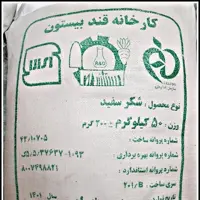 کارخانه قند بیستون
نوع محصول: شکر سفید
وزن: ۵۰ کیلوگرم ± ۲۰۰ گرم
شماره پروانه ساخت: ۴۴/۱۰۷۰۵
شماره پروانه بهره برداری:
شماره پروانه استاندارد: ۸۰۰۷۴۹۸۸۲۱
سری ساخت: ۲۰۱/B
تاریخ تولید: سال ۱۴۰۱